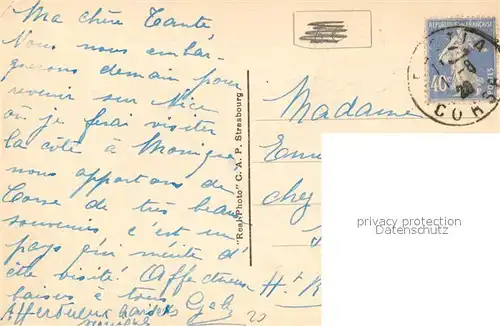 Ma chère Tante
Nous nous embar-
querons demain pour
revenir sur Nice
où je ferai visiter
la côte à Monique
nous apportons de
Corse de très beaux
souvenirs c'est un
pays qui mérite d'
être visité. Affectueux
baisers à tous Gaby
Affectueux baisers
Monique
"Real-Photo" C. A. P. Strasbourg
REPUBLIQUE FRANÇAISE
40c
POSTES
COR
Madame
chez
Ht. R
20
privacy protection
Datenschutz